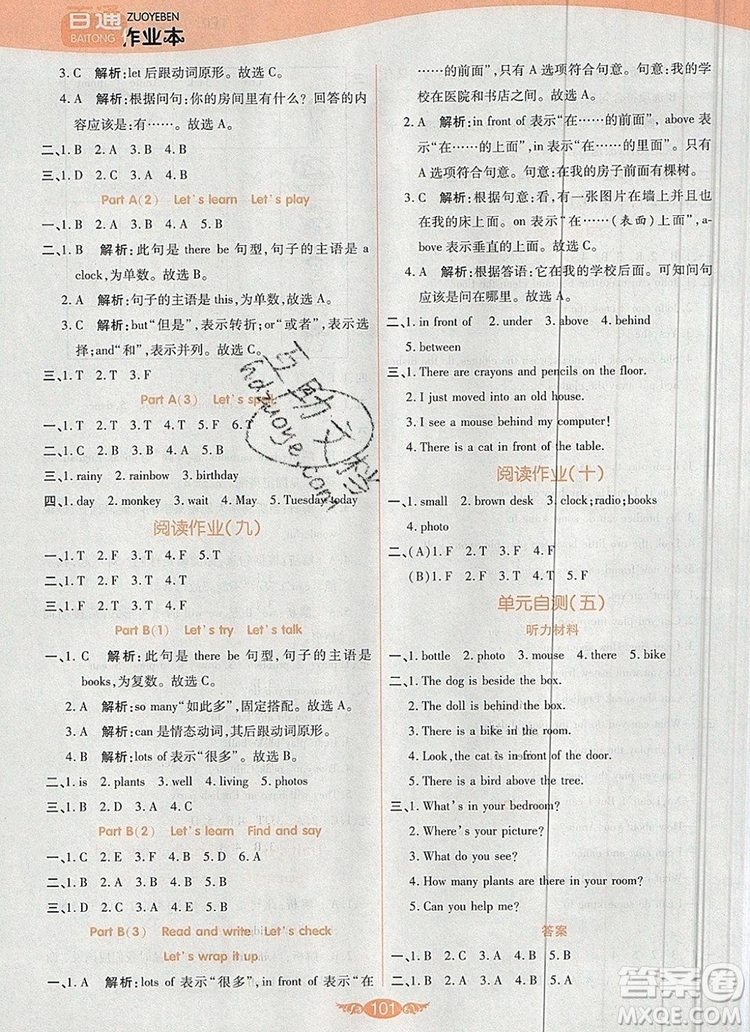 百通
BAITONG
ZUOYEBEN
作业本
3. C 解析:let 后跟动词原形。故选 C。
4. A 解析:根据问句:你的房间里有什么? 回答的内
容应该是:有……。故选 A。
二、1. B 2. A 3. B 4. B
Part A(2) Let's learn Let's play
一、1. D 2. C 3. A 4. A 5. B
二、1. B 解析:此句是 there be 句型,句子的主语是 a
clock,为单数。故选 B。
2. A 解析:句子的主语是 this,为单数,故选 A。
3. C 解析:but“但是”,表示转折;or“或者”,表示选
择;and“和”,表示并列。故选 C。
三、1. T 2. T 3. F
Part A(3) Let's spell
一、1. F 2. F 3. T 4. F 5. T 6. T
二、1. B 2. B 3. B 4. A
三、1. rainy 2. rainbow 3. birthday
四、1. day 2. monkey 3. wait 4. May 5. Tuesday today
阅读作业(九)
一、1. T 2. F 3. T 4. F 5. T
二、1. T 2. F 3. F 4. T
三、1. C 2. C 3. A 4. A
Part B(1) Let's try Let's talk
一、1. C 解析:此句是 there be 句型,句子的主语是
books,为复数。故选 C。
2. A 解析:so many“如此多”,固定搭配。故选 A。
3. A 解析:can 是情态动词,其后跟动词原形。
4. B 解析:lots of 表示“很多”。故选 B。
二、1. is 2. plants 3. well 4. living 5. photos
三、1. B 2. D 3. A 4. C
Part B(2) Let's learn Find and say
一、1. C 2. B 3. A 4. B 5. D 6. A
二、1. C 2. B 3. A 4. C 5. B
三、1. D 2. C 3. E 4. A 5. B
Part B(3) Read and write Let's check
Let's wrap it up
一、1. A 解析:lots of 表示“很多”, in front of 表示“在
……的前面”,只有 A 选项符合句意。句意:我的学
校在医院和书店之间。故选 A。
2. A 解析:in front of 表示“在……的前面”, above 表
示“在……的上面”,in 表示“在……的里面”。只有
A 选项符合句意。句意:在我的房子前面有棵树。
3. C 解析:根据句意:看,有一张图片在墙上并且
在我的床上面。on 表示“在……(表面)上面”, a-
bove 表示垂直的上面。故选 C。
4. A 解析:根据答语:它在我的学校后面。可知问句
应该是问在哪里。故选 A。
二、1. in front of 2. under 3. above 4. behind
5. between
三、1. There are crayons and pencils on the floor.
2. I just moved into an old house.
3. I see a mouse behind my computer!
4. There is a cat in front of the table.
阅读作业(十)
一、1. small 2. brown desk 3. clock;radio;books
4. photo
二、(A)1. F 2. T 3. T 4. F
(B)1. F 2. T 3. F 4. T 5. F
单元自测(五)
听力材料
一、1. bottle 2. photo 3. mouse 4. there 5. bike
二、1. The dog is beside the box.
2. The doll is behind the box.
3. There is a bike in the room.
4. Look,the cat is in front of the door.
5. There is a bird above the tree.
三、1. What's in your bedroom?
2. Where's your picture?
3. What do you see?
4. How many plants are there in your room?
5. Can you help me?
答案
一、1. B 2. A 3. A 4. B 5. A
二、1. A 2. B 3. B 4. A 5. A
101
答案圈
MXQE.COM